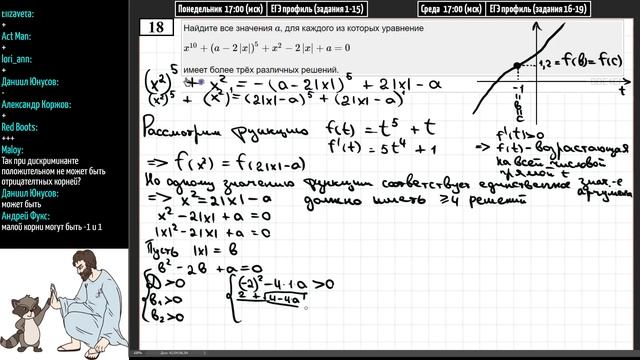 Понедельник 17:00 (мск) ЕГЭ профиль (задания 1-15)
Среда 17:00 (мск) ЕГЭ профиль (задания 16-19)
Елизавета:
+
Act Man:
+
lori_ann:
+
Даниил Юнусов:
-
Александр Коржов:
+
Red Boots:
+++
Maloy:
Так при дискриминанте
положительном не может быть
отрицателтных корней?
Даниил Юнусов:
может быть
Андрей Фукс:
малой корни могут быть -1 и 1
18
Найдите все значения a, для каждого из которых уравнение
x¹⁰ + (a − 2|x|)⁵ + x² − 2|x| + a = 0
имеет более трёх различных решений.
(x²)⁵ + x² = −(a − 2|x|)⁵ + 2|x| − a
(x²)⁵ + (x²)¹ = (2|x| − a)⁵ + (2|x| − a)¹
Рассмотрим функцию f(t) = t⁵ + t
f'(t) = 5t⁴ + 1
=> f(x²) = f(2|x| − a)
1,2 = f(b) = f(c)
-1
b
c
t
f'(t) > 0
=> f(t) - возрастающая
на всей числовой
прямой t
Но одному значению функции соответствует единственное знач-е
аргумента
=> x² = 2|x| − a
должно иметь ≥ 4 решений
x² − 2|x| + a = 0
|x|² − 2|x| + a = 0
Пусть |x| = b
b² − 2b + a = 0
{ D > 0
b₁ > 0
b₂ > 0
{ (−2)² − 4·1·a > 0
2 + √4−4a